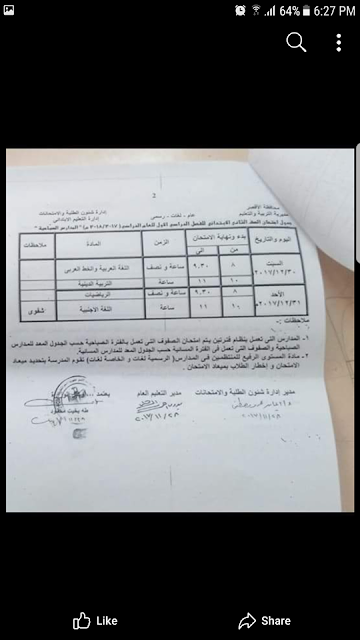 64% 6:27 PM
2
محافظة الأقصر
مديرية التربية والتعليم
عام - لغات - رسمى
إدارة شئون الطلبة والامتحانات
إدارة التعليم الابتدائى
جدول امتحان الصف الثانى الابتدائى للفصل الدراسى الأول للعام الدراسى (٢٠١٨/٢٠١٧ م) " المدارس الصباحية "
اليوم والتاريخ بدء ونهاية الامتحان الزمن المادة ملاحظات
من إلى
السبت ٢٠١٧/١٢/٣٠ ٨ ٩.٣٠ ساعة و نصف اللغة العربية والخط العربى
١٠ ١١ ساعة التربية الدينية
الأحد ٢٠١٧/١٢/٣١م ٨ ٩.٣٠ ساعة و نصف الرياضيات
١٠ ١١ ساعة اللغة الأجنبية شفوى
ملاحظات :-
١- المدارس التى تعمل بنظام فترتين يتم امتحان الصفوف التى تعمل بالفترة الصباحية حسب الجدول المعد للمدارس
الصباحية والصفوف التى تعمل فى الفترة المسائية حسب الجدول المعد للمدارس المسائية.
٢- مادة المستوى الرفيع للمنتظمين فى المدارس( الرسمية لغات و الخاصة لغات) تقوم المدرسة بتحديد ميعاد
الامتحان و إخطار الطلاب بميعاد الامتحان .
مدير إدارة شئون الطلبة والامتحانات
مدير التعليم العام
يعتمد
طه بخيت محمود
Like Share